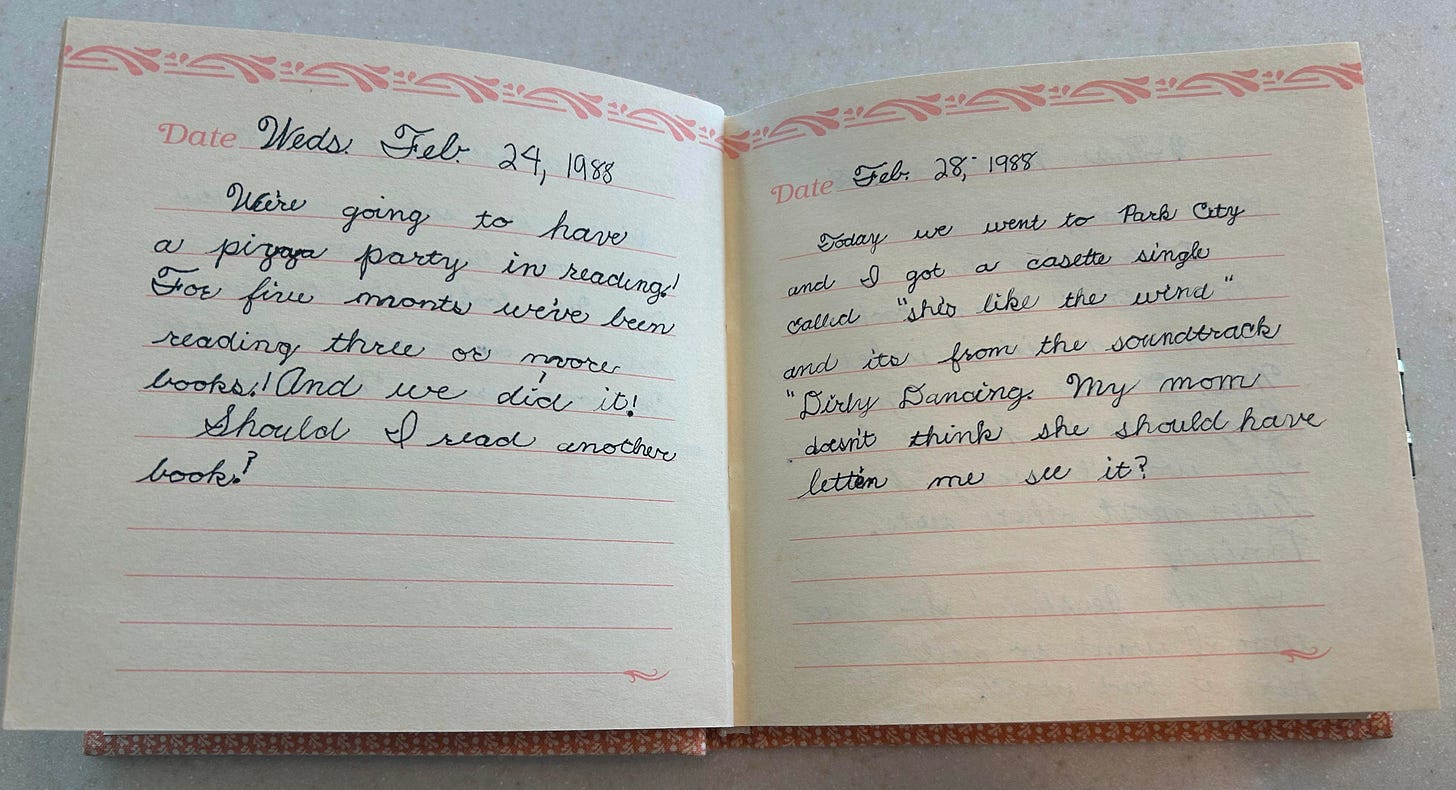 Date Weds. Feb. 24, 1988
We're going to have
a pizza party in reading!
For five monts we've been
reading three or more
books! And we did it!
Should I read another
book?
Date Feb. 28, 1988
Today we went to Park City
and I got a casette single
called "she's like the wind"
and its from the soundtrack
"Dirty Dancing. My mom
doesn't think she should have
letten me see it?